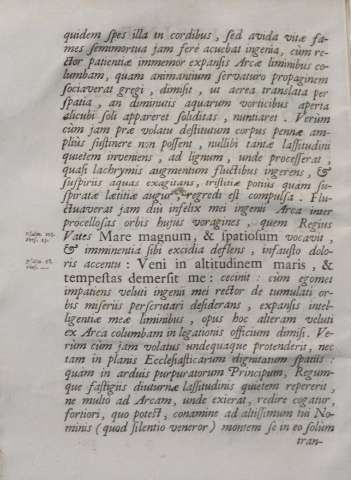 quidem spes illa in cordibus, sed avida vitæ fa-
mes semimortua jam ferè acuebat ingenia, cùm re-
ctor patientiæ immemor expansis Arcæ liminibus co-
lumbam, quam animantium servaturo propaginem
sociaverat gregi, dimisit, ut aerea translata per
spatia, an diminutis aquarum vorticibus aperta
alicubi soli appareret soliditas, nuntiaret. Verum
cùm jam præ volatu destitutum corpus pennæ am-
pliùs sustinere non possent, nullibi tantæ lassitudini
quietem inveniens, ad lignum, unde processerat,
quasi lachrymis augmentum fluctibus ingerens, &
suspiriis aquas exagitans, tristitiæ potiùs quàm su-
spiratæ lætitiæ augur, regredi est compulsa. Flu-
ctuaverat jam diu infelix mei ingenii Arca inter
procellosas orbis hujus voragines, quem Regius
Vates Mare magnum, & spatiosum vocavit,
& imminentia sibi excidia deflens, infausto dolo-
ris accentu: Veni in altitudinem maris, &
tempestas demersit me: cecinit: cùm egomet
impatiens veluti ingenii mei rector de tumulati or-
bis miseriis perscrutari desiderans, expansis intel-
ligentiæ meæ liminibus, opus hoc alterum veluti
ex Arca columbam in legationis officium dimisi. Ve-
rùm cùm jam volatus undequaque protenderit, nec
tam in planis Ecclesiasticarum dignitatum spatiis:
quàm in arduis purpuratorum Principum, Regum-
que fastigiis diuturnæ lassitudinis quietem repererit,
ne multo ad Arcam, unde exierat, redire cogatur,
fortiori, quo potest, conamine ad altissimum tui No-
minis (quod silentio veneror) montem se in eo solùm
tran-
Psalm. 103.
Vers. 25.
Psalm. 68.
Vers.